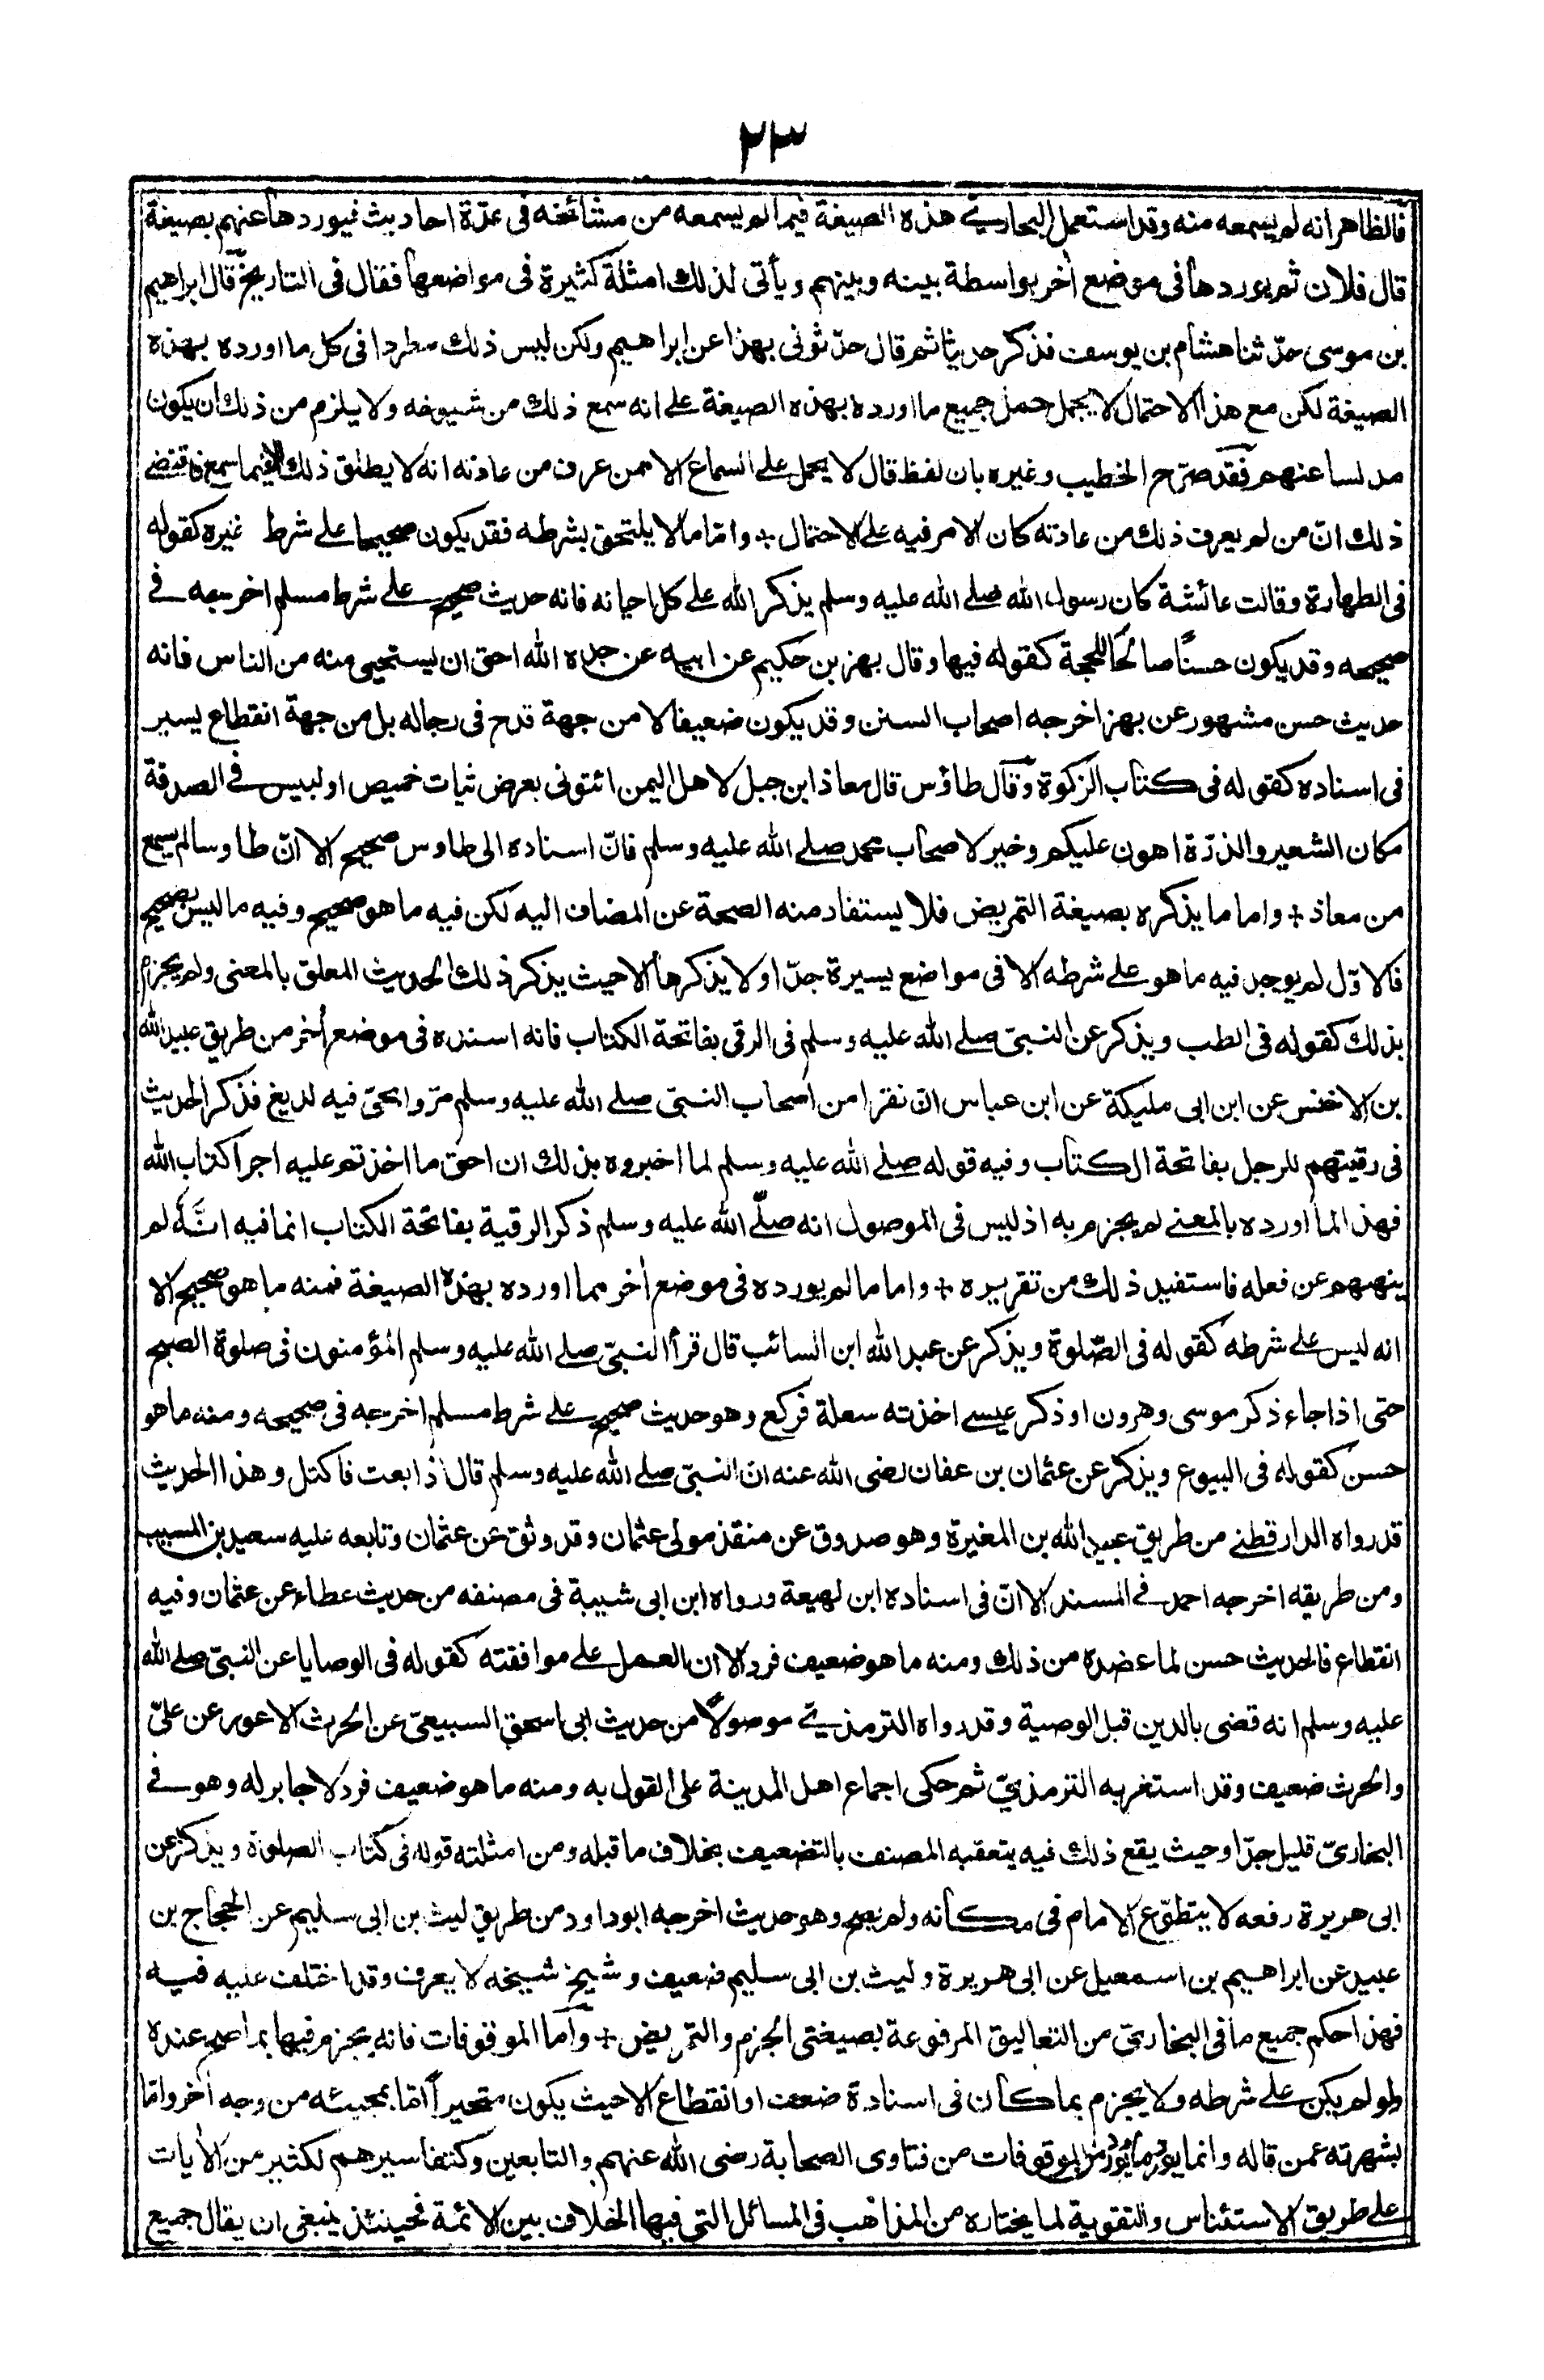 ٢٣
فالظاهر انه لم يسمعه منه وقد استعمل البخاري هذه الصيغة فيما لم يسمعه من مشائخه في عدّة احاديث فيوردها عنهم بصيغة
قال فلان ثم يوردها في موضع أخر بواسطة بينه وبينهم ويأتى لذلك امثلة كثيرة في مواضعها فقال في التاريخ قال ابراهيم
بن موسى حدّثنا هشام بن يوسف فذكر حديثا ثم قال حدّثونى بهذا عن ابراهيم ولكن ليس ذلك مطردا في كل ما اورده بهذه
الصيغة لكن مع هذا الاحتمال لا يجمل حمل جميع ما اورده بهذه الصيغة على انه سمع ذلك من شيوخه ولا يلزم من ذلك ان يكون
مدلسا عنهم فقد صرّح الخطيب وغيره بان لفظ قال لا يحمل على السماع الا ممن عرف من عادته انه لا يطلق ذلك الا فيما سمع فاقتضى
ذلك انّ من لم يعرف ذلك من عادته كان الامر فيه على الاحتمال + وامّا ما لا يلتحق بشرطه فقد يكون صحيحا على شرط غيره كقوله
فى الطهارة وقالت عائشة كان رسول الله صلى الله عليه وسلم يذكر الله على كل احيانه فانه حديث صحيح على شرط مسلم اخرجه في
صحيحه وقد يكون حسنًا صالحًا للحجة كقوله فيها وقال بهز بن حكيم عن ابيه عن جده الله احق ان يستحيى منه من الناس فانه
حديث حسن مشهور عن بهز اخرجه اصحاب السنن وقد يكون ضعيفا لا من جهة قدح فى رجاله بل من جهة انقطاع يسير
فى اسناده كقوله فى كتاب الزكوة وقال طاؤس قال معاذ ابن جبل لاهل اليمن ائتونى بعرض ثياب خميص او لبيس فى الصدقة
مكان الشعير والذرّة اهون عليكم وخير لاصحاب محمد صلى الله عليه وسلم فانّ اسناده الى طاوس صحيح الا انّ طاوسا لم يسمع
من معاذ + واما ما يذكره بصيغة التمريض فلا يستفاد منه الصحة عن المضاف اليه لكن فيه ما هو صحيح وفيه ما ليس بصحيح
فالاوّل لم يوجد فيه ما هو على شرطه الا فى مواضع يسيرة جدّا ولا يذكرها الا حيث يذكر ذلك الحديث المعلق بالمعنى ولم يجزم
بذلك كقوله فى الطب ويذكر عن النبىّ صلى الله عليه وسلم فى الرقى بفاتحة الكتاب فانه اسنده فى موضع أخر من طريق عبيد الله
بن الاخنس عن ابن ابى مليكة عن ابن عباس انّ نفرا من اصحاب النبىّ صلى الله عليه وسلم مرّوا بحىّ فيه لديغ فذكر الحديث
فى رقيتهم للرجل بفاتحة الكتاب وفيه قوله صلى الله عليه وسلم لما اخبروه بذلك ان احق ما اخذتم عليه اجرا كتاب الله
فهذا لما اورده بالمعنى لم يجزم به اذ ليس فى الموصول انه صلّى الله عليه وسلم ذكر الرقية بفاتحة الكتاب انما فيه انّه لم
ينههم عن فعله فاستفيد ذلك من تقريره + واما ما لم يورده فى موضع أخر مما اورده بهذه الصيغة فمنه ما هو صحيح الا
انه ليس على شرطه كقوله فى الصّلوة ويذكر عن عبد الله ابن السائب قال قرأ النبىّ صلى الله عليه وسلم المؤمنون فى صلوة الصبح
حتى اذا جاء ذكر موسى وهرون او ذكر عيسى اخذته سعلة فركع وهو حديث صحيح على شرط مسلم اخرجه فى صحيحه ومنه ما هو
حسن كقوله فى البيوع ويذكر عن عثمان بن عفان رضى الله عنه ان النبىّ صلى الله عليه وسلم قال اذا بعت فاكتل وهذا الحديث
قد رواه الدارقطنى من طريق عبيد الله بن المغيرة وهو صدوق عن منقذ مولى عثمان وقد وثق عن عثمان وتابعه عليه سعيد بن المسيب
ومن طريقه اخرجه احمد فى المسند الا انّ فى اسناده ابن لهيعة ورواه ابن ابى شيبة فى مصنفه من حديث عطاء عن عثمان وفيه
انقطاع فالحديث حسن لما عضده من ذلك ومنه ما هو ضعيف فرد الا ان العمل على موافقته كقوله فى الوصايا عن النبىّ صلى الله
عليه وسلم انه قضى بالدين قبل الوصية وقد رواه الترمذىّ موصولًا من حديث ابى اسحق السبيعىّ عن الحرث الاعور عن علىّ
والحرث ضعيف وقد استغربه الترمذىّ ثم حكى اجماع اهل المدينة على القول به ومنه ما هو ضعيف فرد لا جابر له وهو فى
البخارىّ قليل جدّا وحيث يقع ذلك فيه يتعقبه المصنف بالتضعيف بخلاف ما قبله ومن امثلته قوله فى كتاب الصلوة ويذكر عن
ابى هريرة رفعه لا يتطوّع الامام فى مكانه ولم يصح وهو حديث اخرجه ابو داود من طريق ليث بن ابى سليم عن الحجاج بن
عبيد عن ابراهيم بن اسمعيل عن ابى هريرة وليث بن ابى سليم ضعيف وشيخ شيخه لا يعرف وقد اختلف عليه فيه
فهذا حكم جميع ما فى البخارىّ من التعاليق المرفوعة بصيغتى الجزم والتمريض + وأما الموقوفات فانه يجزم فيها بما صح عنده
ولو لم يكن على شرطه ولا يجزم بما كان فى اسناده ضعف او انقطاع الا حيث يكون منجبراً امّا بمجيئه من وجه أخر وامّا
بشهرته عمن قاله وانما يورد ما يورد من الموقوفات من فتاوى الصحابة رضى الله عنهم والتابعين وكتفاسيرهم لكثير من الأيات
على طريق الاستئناس والتقوية لما يختاره من المذاهب فى المسائل التى فيها الخلاف بين الائمة فحينئذ ينبغى ان يقال جميع